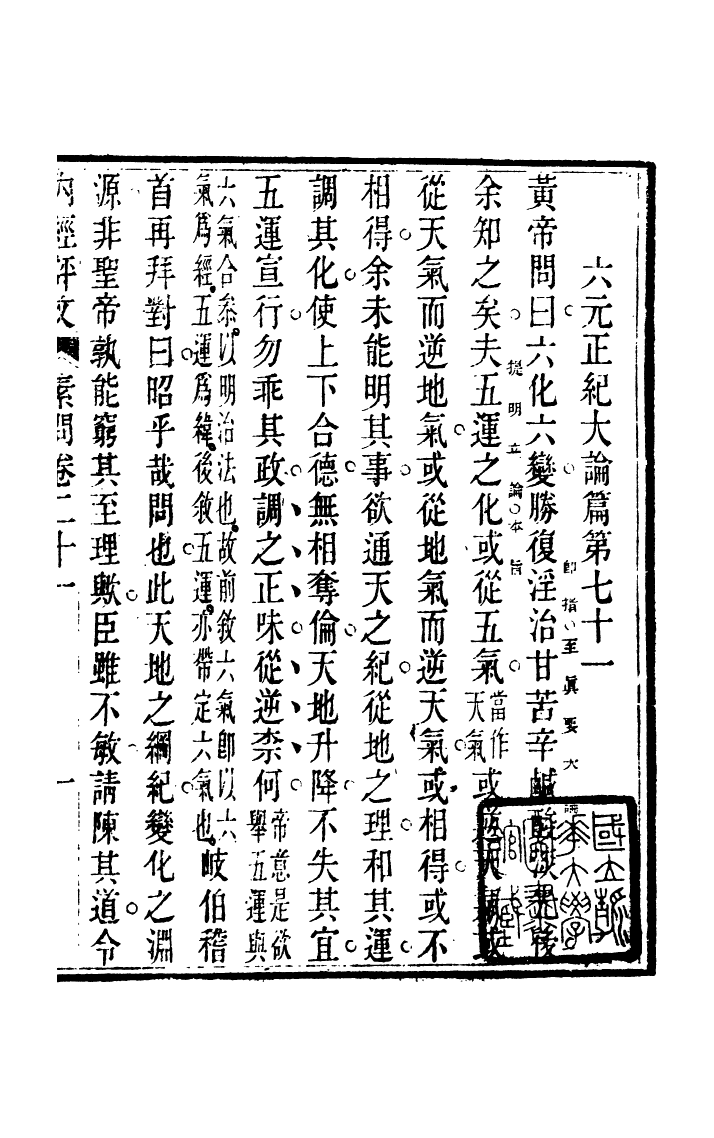 六元正紀大論篇第七十一
卽指至眞要大論
黃帝問曰六化六變勝復淫治甘苦辛鹹酸淡先後
提明立論本旨
余知之矣夫五運之化或從五氣當作天氣或逆天氣或
從天氣而逆地氣或從地氣而逆天氣或相得或不
相得余未能明其事欲通天之紀從地之理和其運
調其化使上下合德無相奪倫天地升降不失其宜
五運宣行勿乖其政調之正味從逆柰何帝意是欲舉五運與
六氣合參以明治法也故前敘六氣卽以六氣爲經五運爲緯後敘五運亦帶定六氣也岐伯稽
首再拜對曰昭乎哉問也此天地之綱紀變化之淵
源非聖帝孰能窮其至理歟臣雖不敏請陳其道令
內經評文 素問卷二十一 一